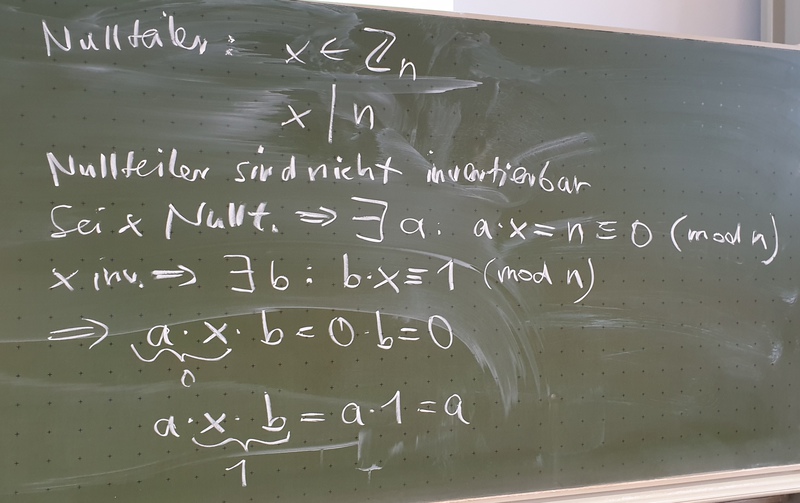 Nullteiler: x ∈ ℤn
x | n
Nullteiler sind nicht invertierbar
Sei x Nullt. ⇒ ∃ a: a·x = n ≡ 0 (mod n)
x inv. ⇒ ∃ b: b·x ≡ 1 (mod n)
⇒ a·x·b = 0·b = 0
0
a·x·b = a·1 = a
1